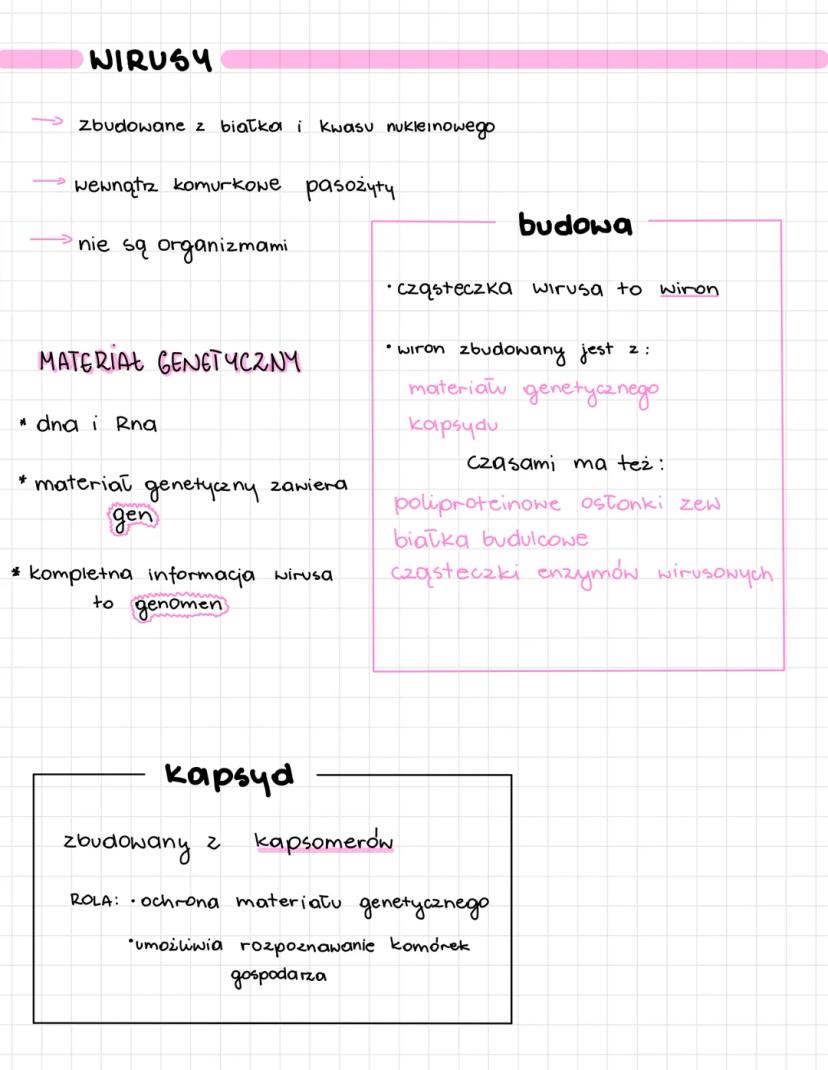 WIRUSY
→ zbudowane z białka i kwasu nukleinowego
→ wewnątrz komurkowe pasożyty
→ nie są organizmami
MATERIAŁ GENETYCZNY
* dna i Rna
* materiał genetyczny zawiera
gen
* kompletna informacja wirusa
to genomen
budowa
• cząsteczka wirusa to wiron
• wiron zbudowany jest z:
materiału genetycznego
kapsydu
czasami ma też:
poliproteinowe osłonki zew
białka budulcowe
cząsteczki enzymów wirusowych
kapsyd
zbudowany z kapsomerów
ROLA: • ochrona materiału genetycznego
• umożliwia rozpoznawanie komórek
gospodarza